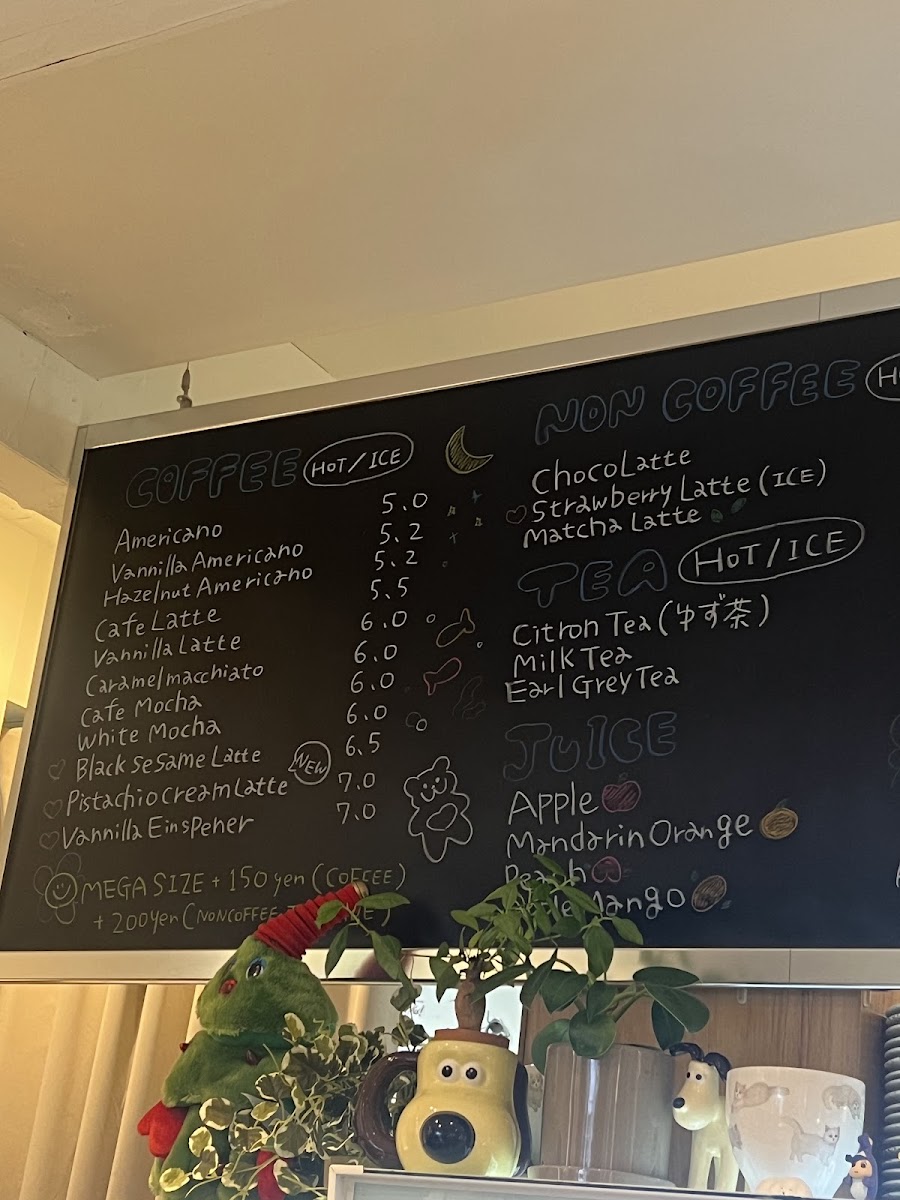 COFFEE HOT/ICE
Americano 5.0
Vannilla Americano 5.2
Hazelnut Americano 5.2
Cafe Latte 5.5
Vannilla Latte 6.0
Caramel macchiato 6.0
Cafe Mocha 6.0
White Mocha 6.0
Black sesame Latte 6.5
Pistachio cream Latte NEW 7.0
Vannilla Einspener 7.0
MEGA SIZE + 150 yen (COFFEE)
+ 200 yen (NONCOFFEE
NON COFFEE
Choco Latte
Strawberry Latte (ICE)
Matcha Latte
TEA HOT/ICE
Citron Tea (ゆず茶)
Milk Tea
Earl Grey Tea
JUICE
Apple
Mandarin Orange
Peach
Mango